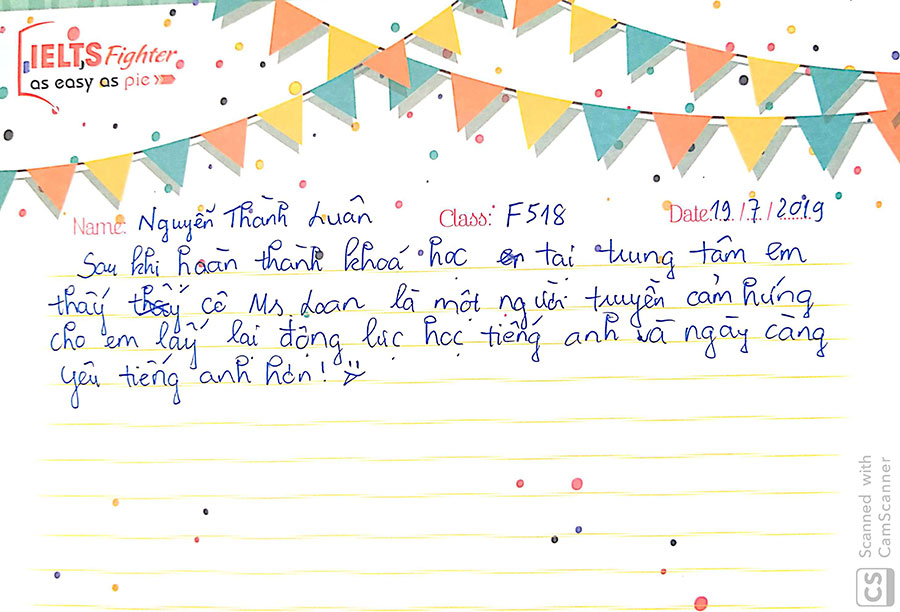 IELTS Fighter
as easy as pie
Name: Nguyễn Thành Luân Class: F518 Date: 19/7/2019
Sau khi hoàn thành khoá học tại trung tâm em
thấy cô Ms. Loan là một người truyền cảm hứng
cho em lấy lại động lực học tiếng anh và ngày càng
yêu tiếng anh hơn!
Scanned with
CamScanner
CS